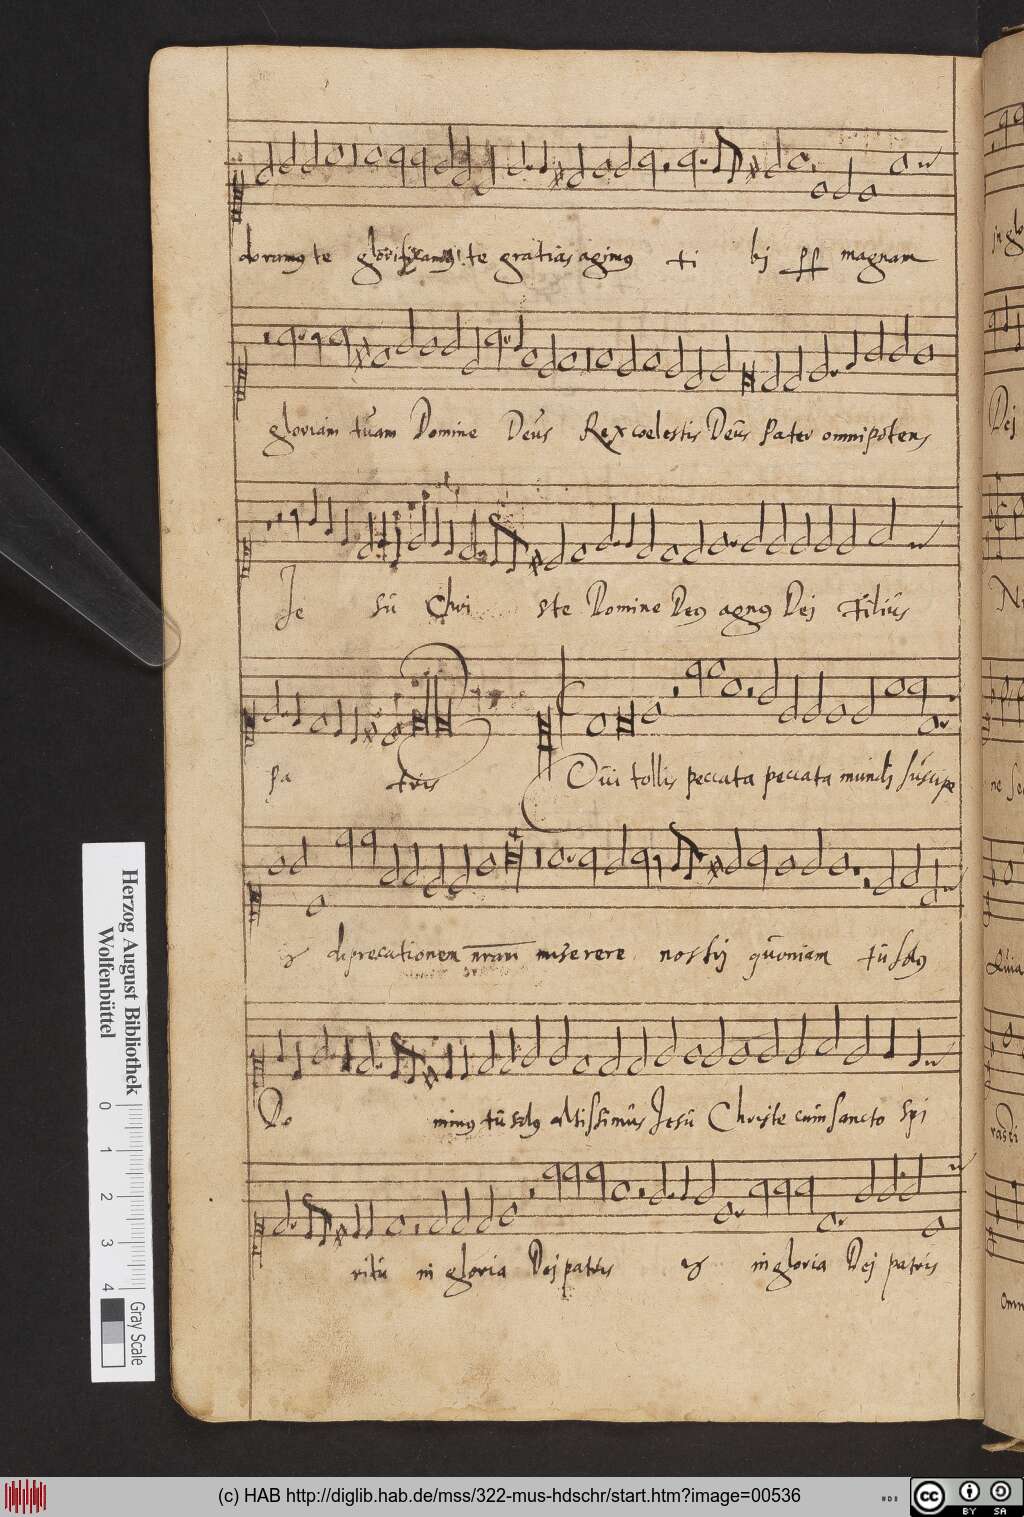 doramꝰ te glorificamꝰ te gratias agimꝰ ti bj magnam
gloriam tuam Domine Deus Rex coelestis Deus Pater omnipotens
Je su Chri ste Domine Deꝰ agnꝰ Dej Filius
Pa tris Qui tollis peccata peccata mundj suscipe
deprecationem nram miserere nostrj quoniam tu solꝰ
Do minꝰ tu solꝰ altissimus Jesu Christe cum sancto spi
ritu in gloria Dej patris in gloria Dej patris
Herzog August Bibliothek
Wolfenbüttel
0 1 2 3 4
Gray Scale
(c) HAB http://diglib.hab.de/mss/322-mus-hdschr/start.htm?image=00536
cc BY SA